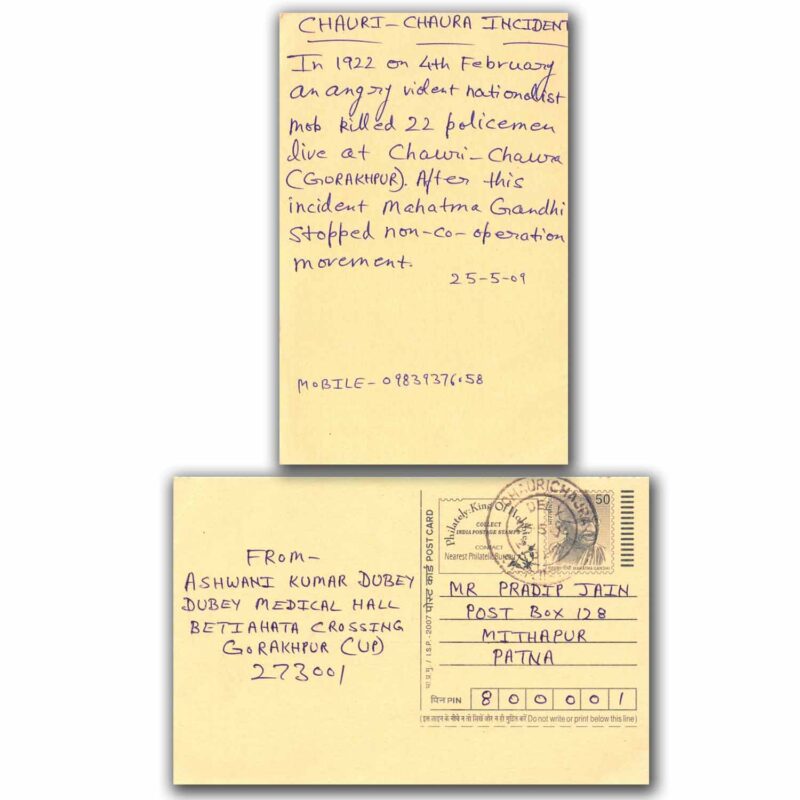 CHAURI-CHAURA INCIDENT
In 1922 on 4th February
an angry violent nationalist
mob killed 22 policemen
live at Chauri-Chaura
(GORAKHPUR). After this
incident Mahatma Gandhi
stopped non-co-operation
movement.
25-5-09
MOBILE-09839376058
FROM-
ASHWANI KUMAR DUBEY
DUBEY MEDICAL HALL
BETIAHATA CROSSING
GORAKHPUR (UP)
273001
I.S.P.-2007 पोस्ट कार्ड POST CARD
Philately-King Of Hobbies
COLLECT
INDIA POSTAGE STAMPS
CONTACT
Nearest Philatelic Bureau
CHAURICHAURA
50
MAHATMA GANDHI
MR PRADIP JAIN
POST BOX 128
MITHAPUR
PATNA
पिन PIN 800001
(इस लाइन के नीचे न तो लिखें और न ही मुद्रित करें Do not write or print below this line)